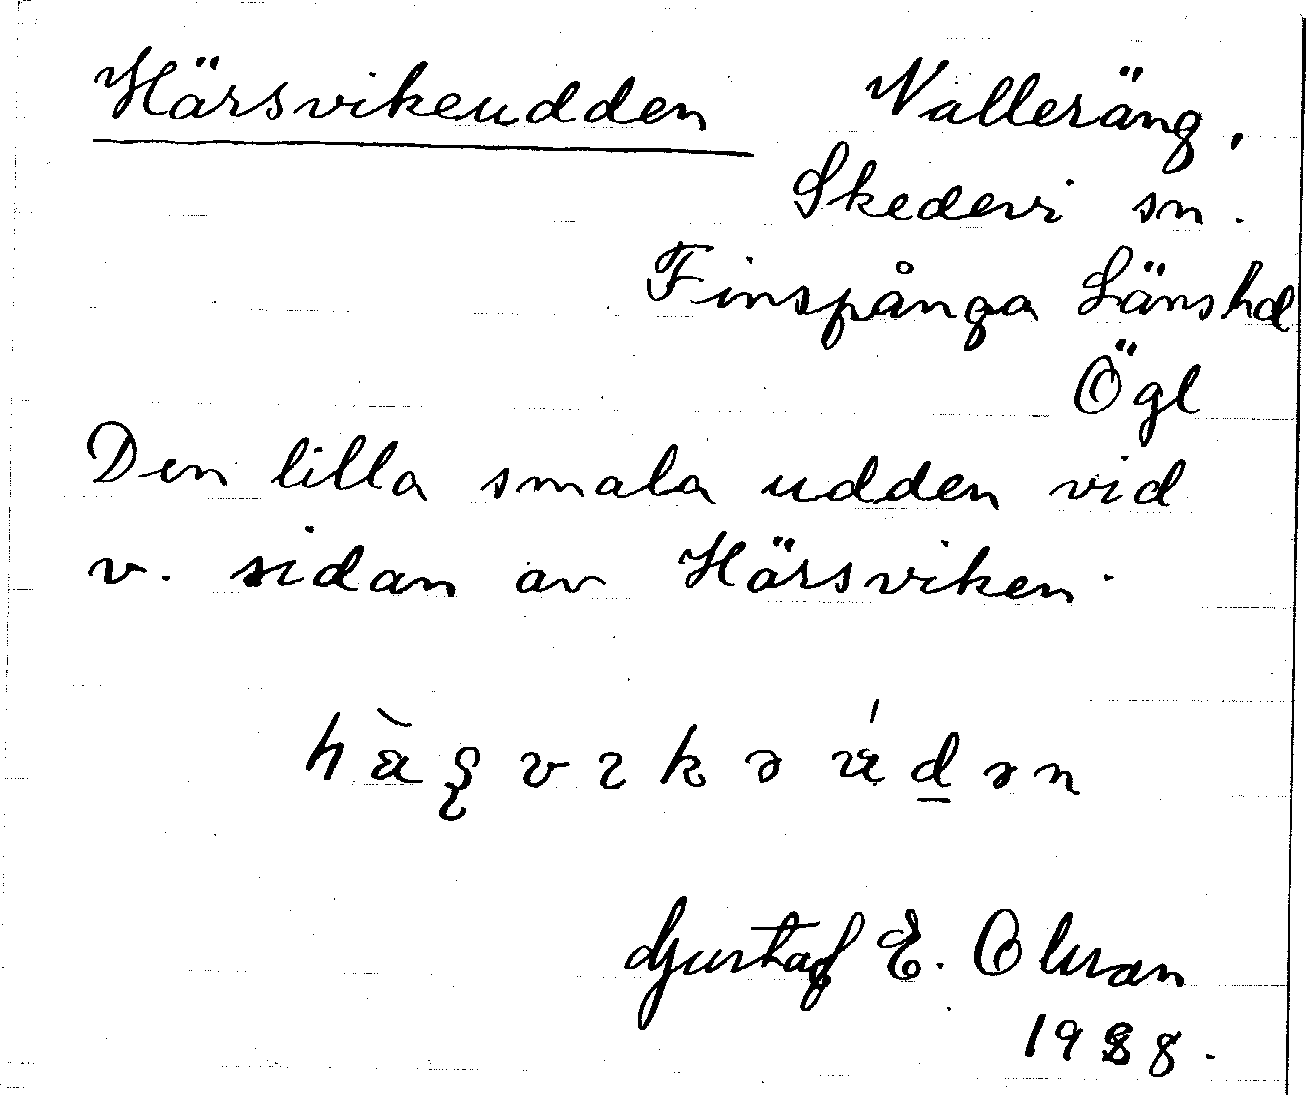 Härsvikeudden Valleräng,
Skedevi sn.
Finspånga Länshd
Ögl
Den lilla smala udden vid
v. sidan av Härsviken.
Gustaf E. Olsson
1988.